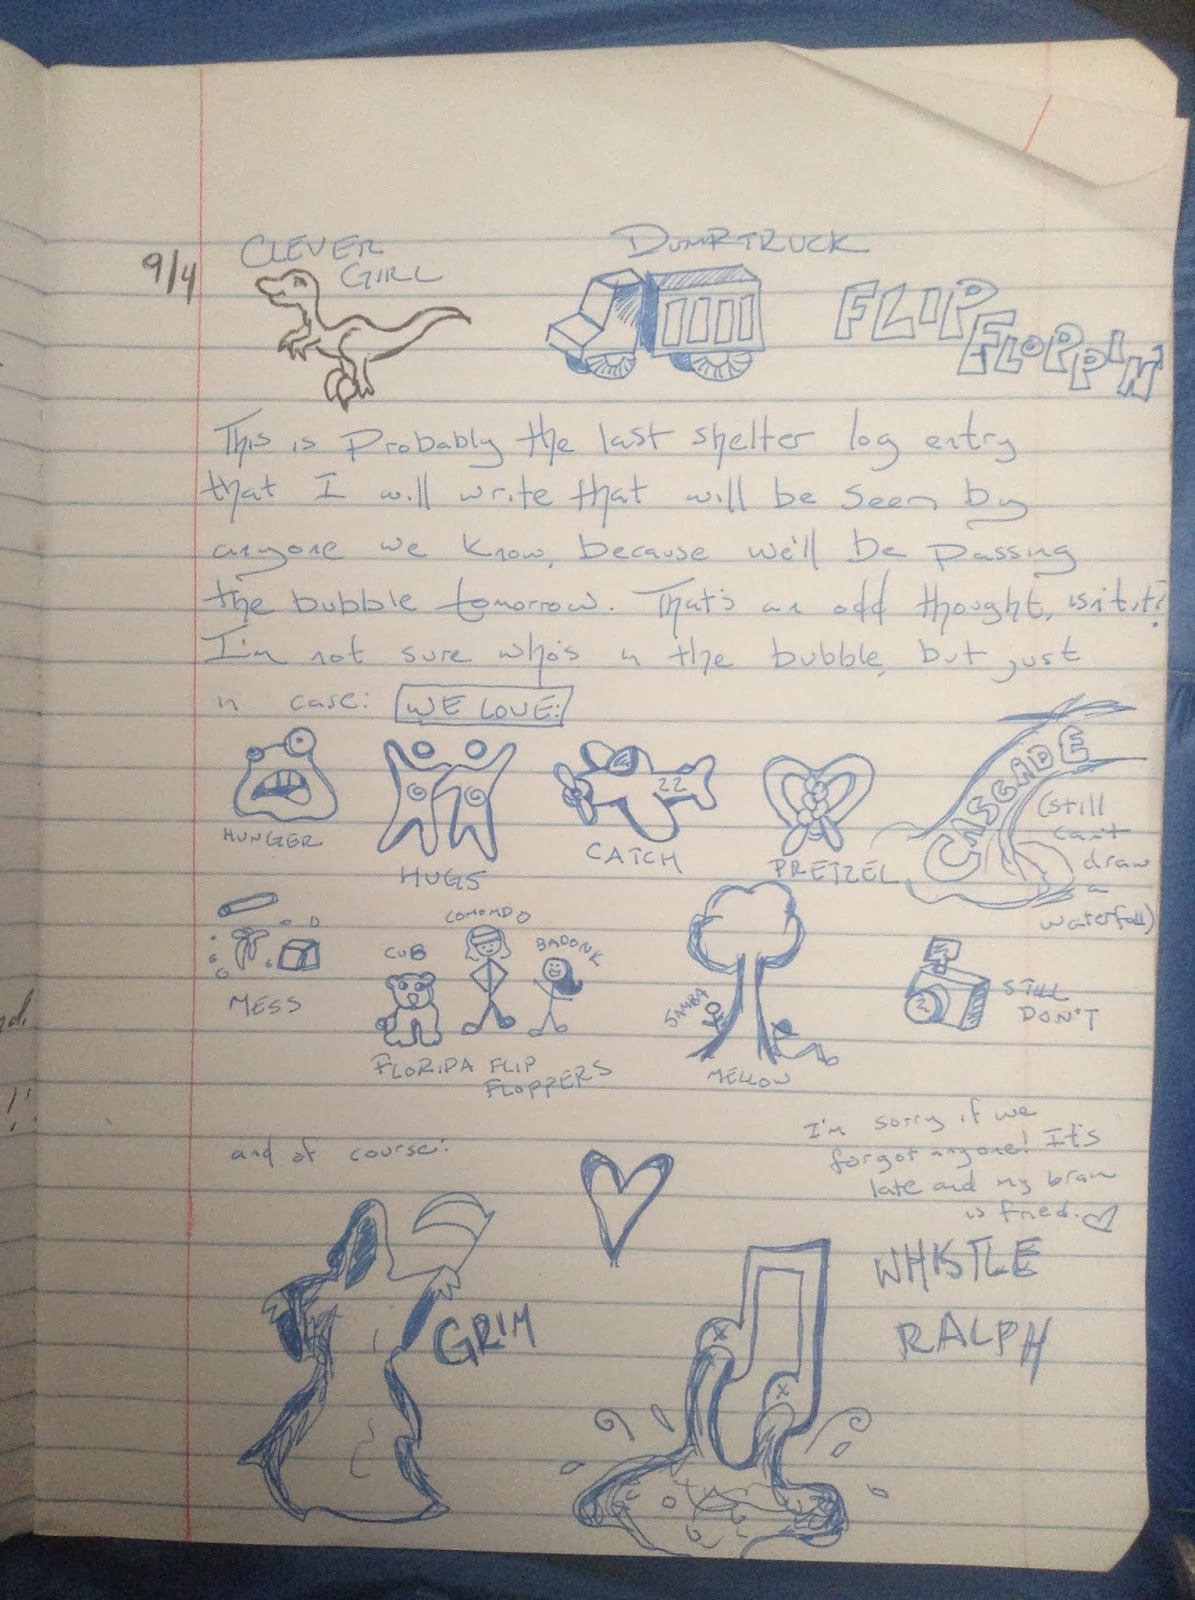 9/4
CLEVER GIRL
DUMPTRUCK
FLIP FLOPPIN'
This is probably the last shelter log entry
that I will write that will be seen by
anyone we know, because we'll be passing
the bubble tomorrow. That's an odd thought, isn't it?
I'm not sure who's in the bubble, but just
in case: WE LOVE:
HUNGER
HUGS
22
CATCH
PRETZEL
CASCADE
(still
can't
draw
a
waterfall)
MESS
CUB
COMOMDO
BADONK
FLORIDA FLIP
FLOPPERS
JAMBA
MELLOW
STILL
DON'T
and of course:
I'm sorry if we
forgot anyone! It's
late and my brain
is fried.
GRIM
WHISTLE
RALPH